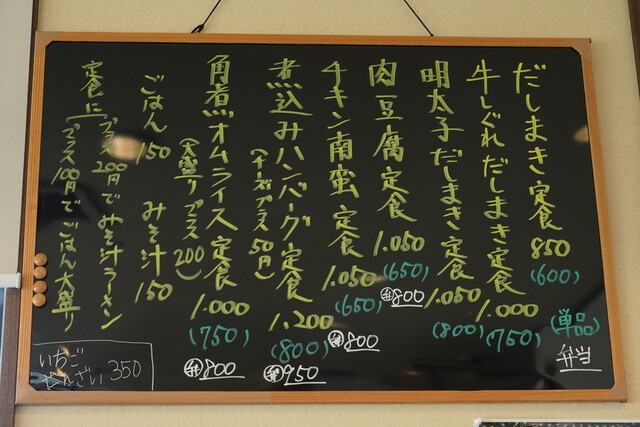 だしまき定食 850 (600)
牛しぐれだしまき定食 1.000 (750)
明太子だしまき定食 1.050 (800)
肉豆腐定食 1.050 (650) 弁800
チキン南蛮定食 1.050 (650) 弁800
煮込みハンバーグ定食 1.200 (800) 弁950
(チーズプラス50円)
角煮オムライス定食 1.000 (750) 弁800
(大盛りプラス200)
ごはん 150 みそ汁 150
定食に プラス200円でみそ汁ラーメン
プラス100円でごはん大盛り
(単品)
弁当
いちご
ぜんざい 350